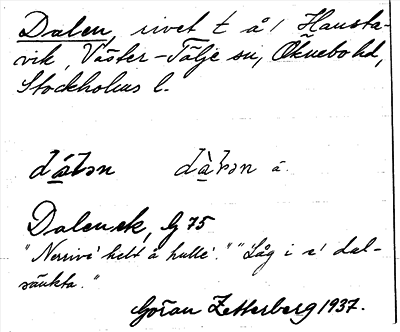 Dalen, rivet t å / Hausta-
vik, Väster-Tälje sn, Öknebo hd,
Stockholms l.
dálən dàlən ä.
Dalen ek, G 75
"Nerrivi helt å hållé." "Låg i e' dal-
sänkta."
Göran Zetterberg 1937.